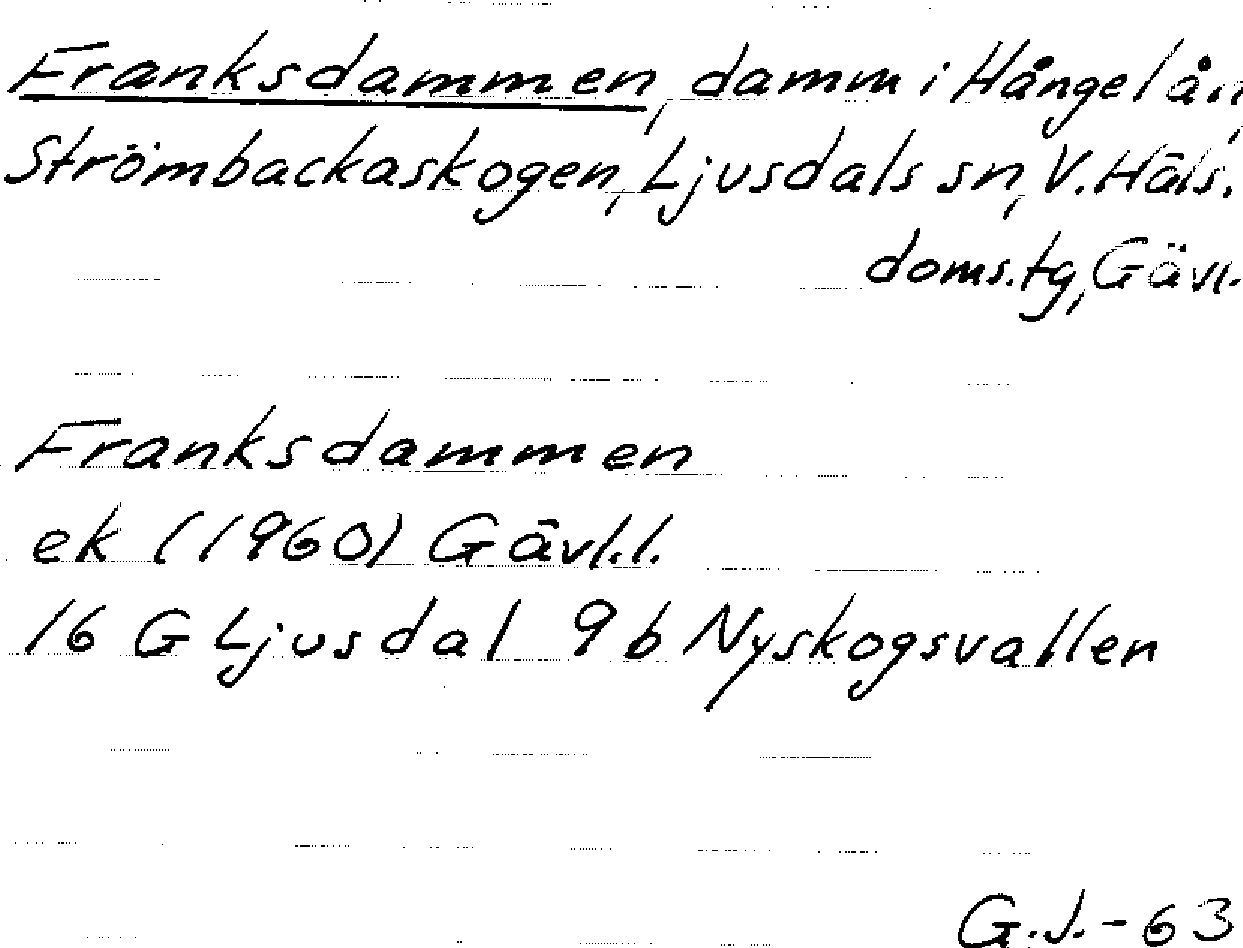 Franksdammen, damm i Hångelån,
Strömbackaskogen, Ljusdals sn, V. Häls.
doms.tg, Gävl.
Franksdammen
ek (1960) Gävl.l.
16 G Ljusdal 9 b Nyskogsvallen
G.J.-63